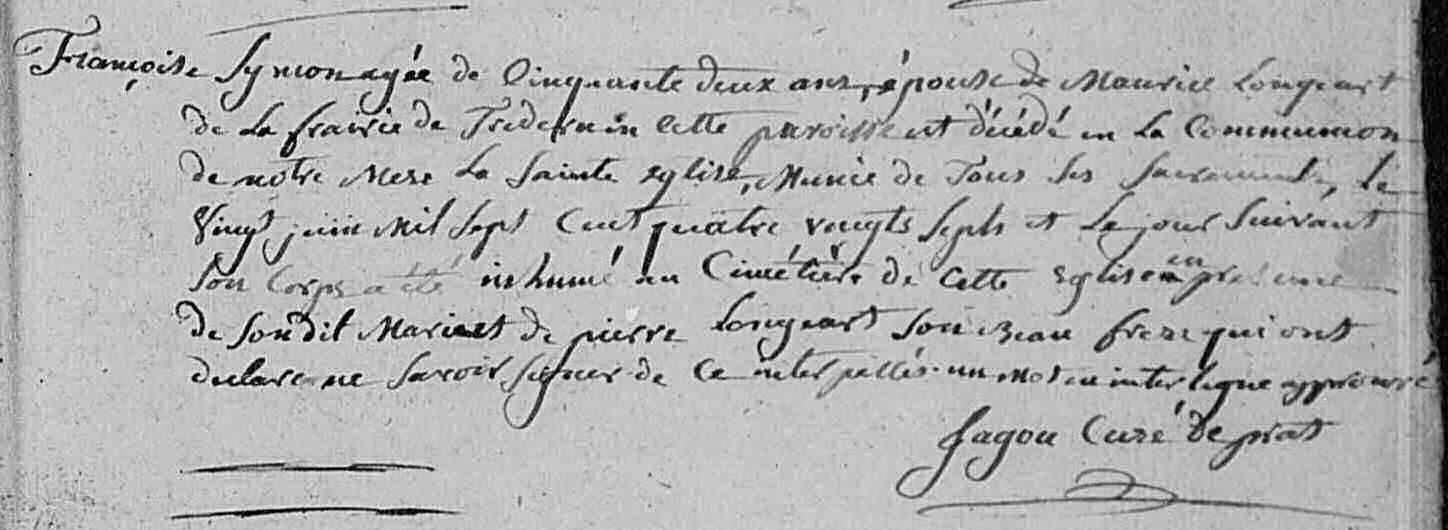 Françoise Symon agée de Cinquante deux ans, épouse de Maurice Longeart
de La frairie de Trédern in Cette paroisse est décédé en La Communion
de notre Mere La Sainte Eglise, Munie de Tous Ses Sacrements, Le
Vingt juin Mil Sept Cent quatre vengts Septs et Le jour Suivant
Son Corps a été inhumé au Cimétiére de Cette Eglise en presence
de Sondit Mari et de pierre Longeart Son Beau frere qui ont
declaré ne Savoir Signer de Ce interpellés. un Mot en interligne approuvé
Jagou Curé de prat